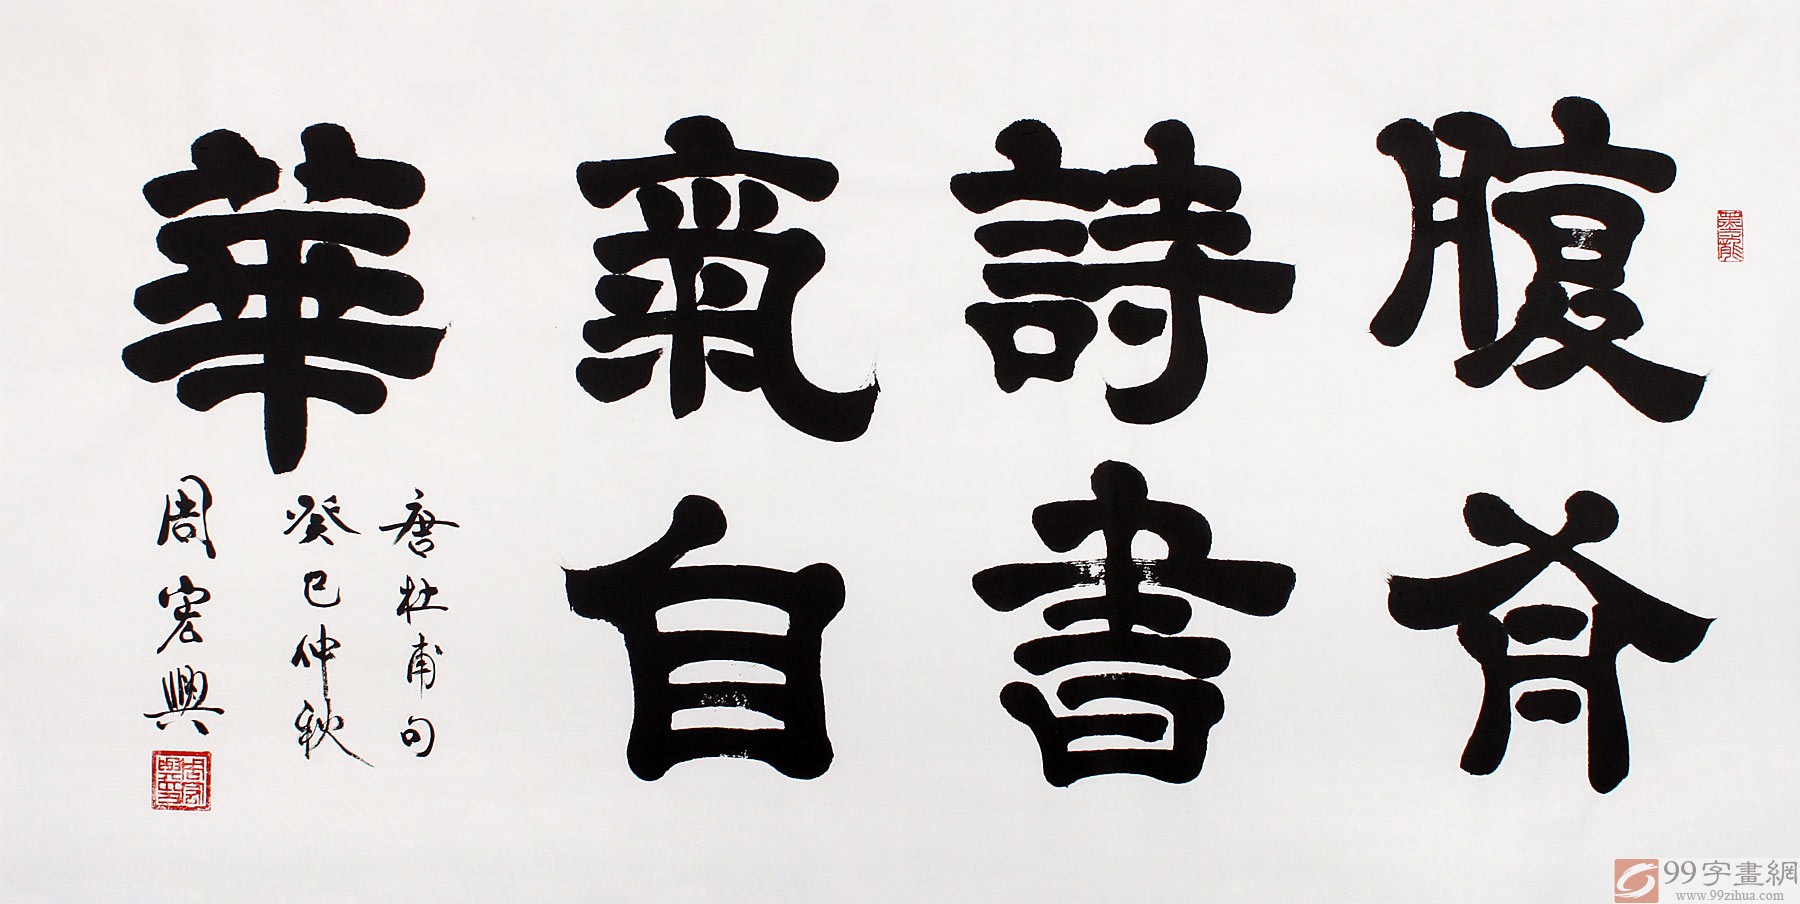 腹有
詩書
氣自
華
唐杜甫句
癸巳仲秋
周宏興
99字畫網
www.99zihua.com